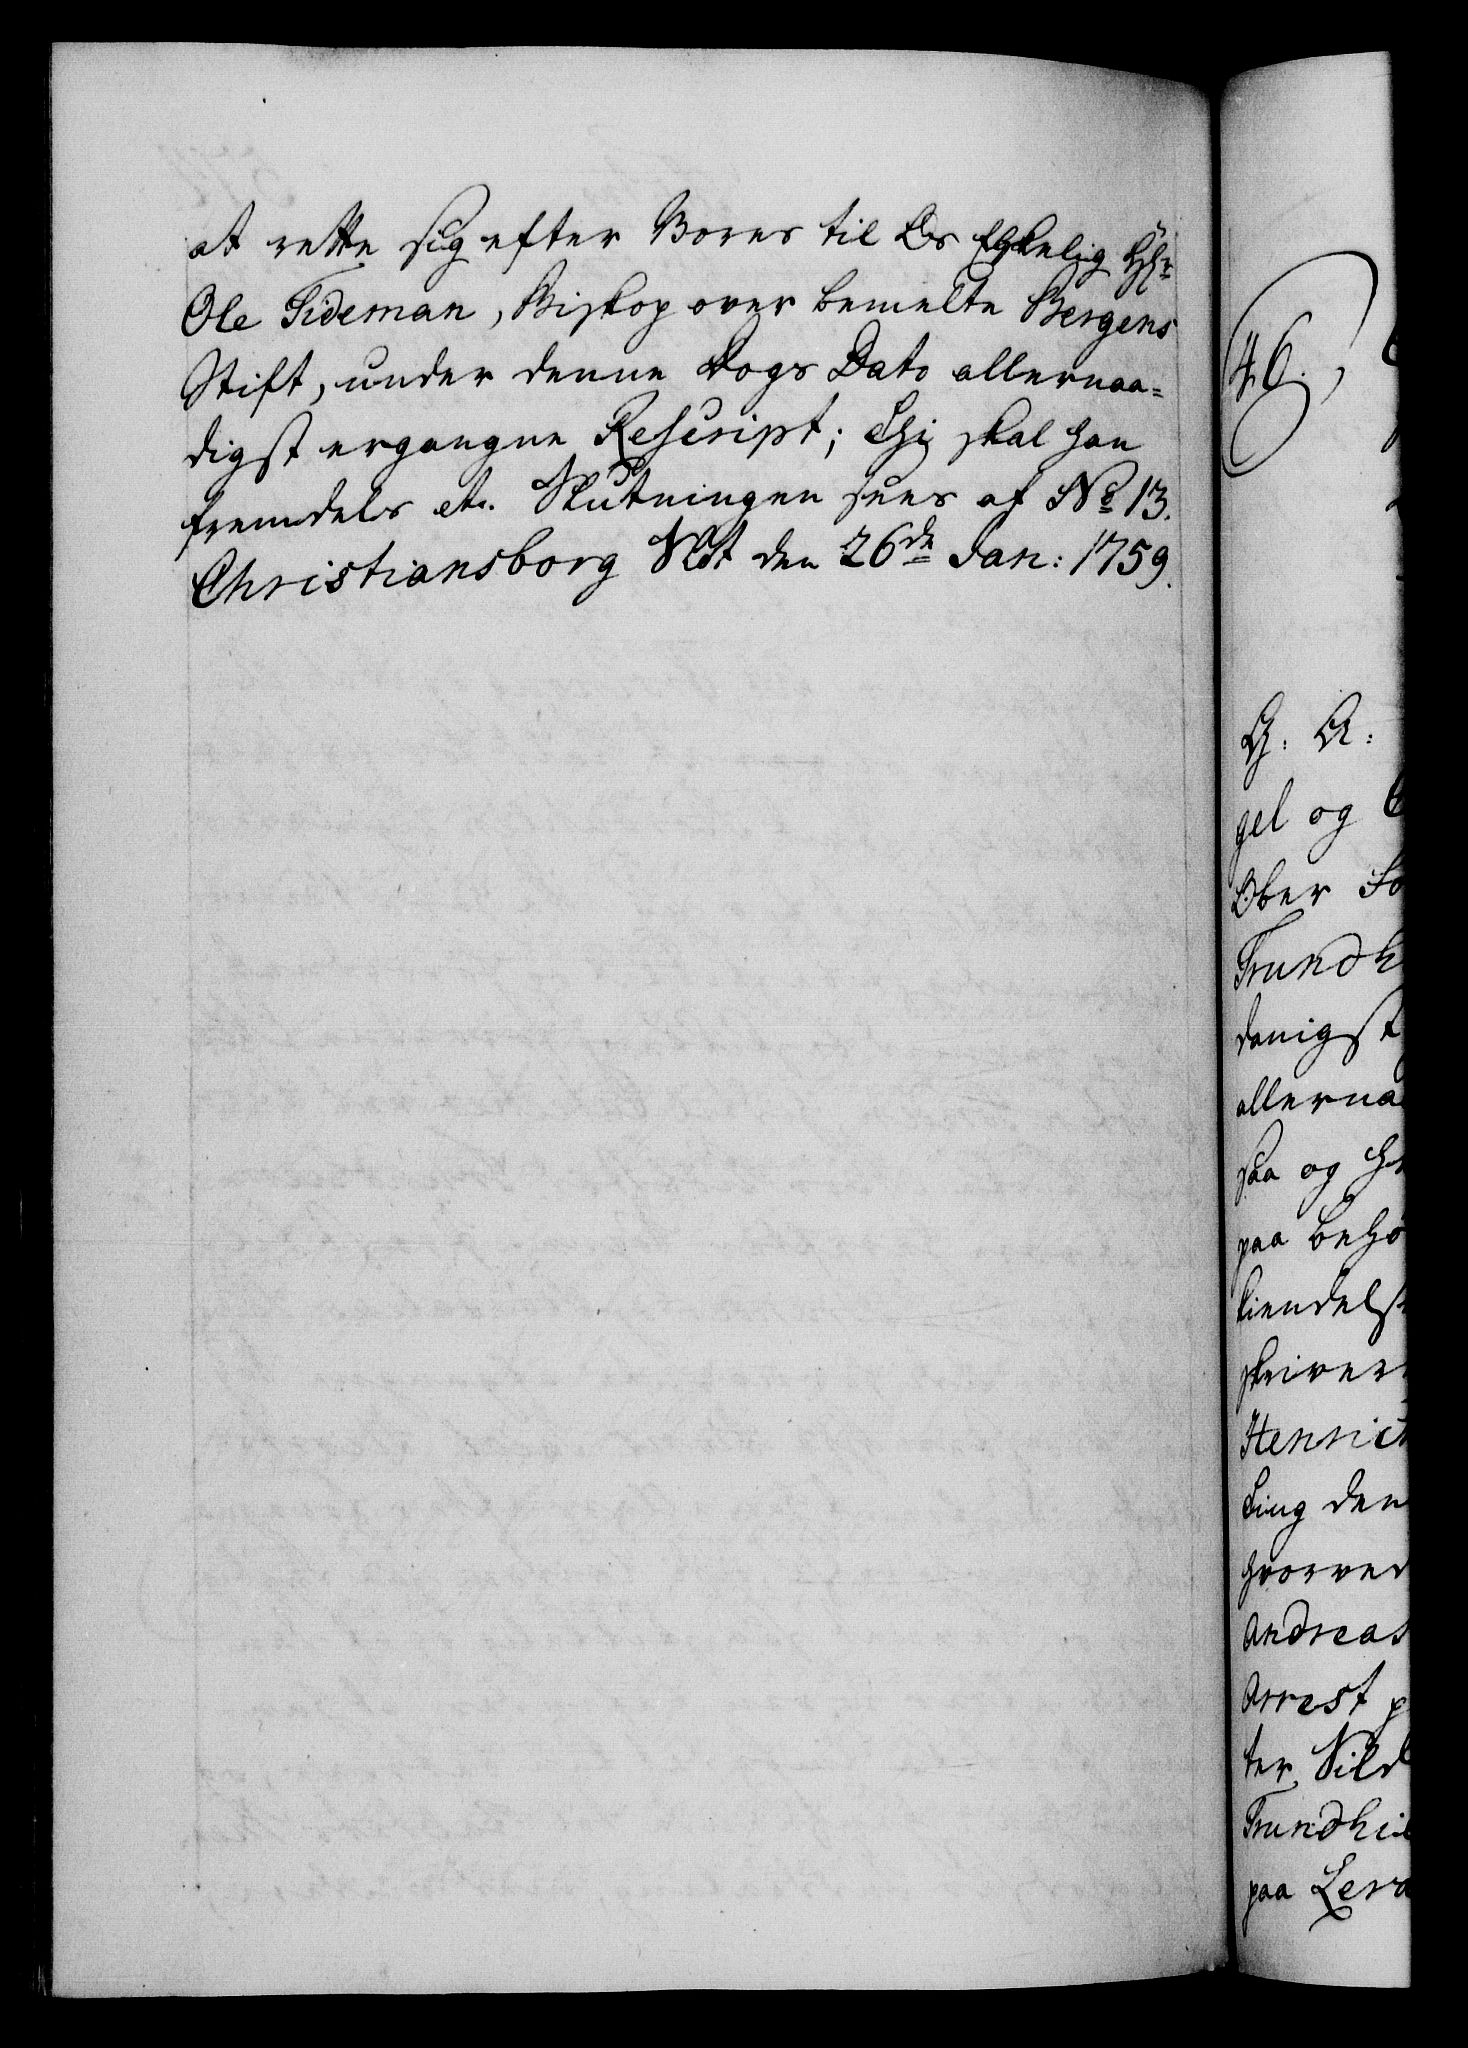 at rette sig efter Vores til Os Elskelig Hr.
Ole Tideman, Biskop over bemelte Bergens
Stift, under denne Dags Dato allernaa=
digst ergangne Rescript; Thi skal han
fremdeles etc. Slutningen sees af No 13.
Christiansborg Slot den 26de Jan: 1759.
46.
G. A:
gel og
Ober
Trundh
danigst
allernaa
saa og
paa behø
kiendelse
skriver
Henrich
Ting den
hvorved
Andreas
Arrest p
ter Nils
Trundhi
paa Lera